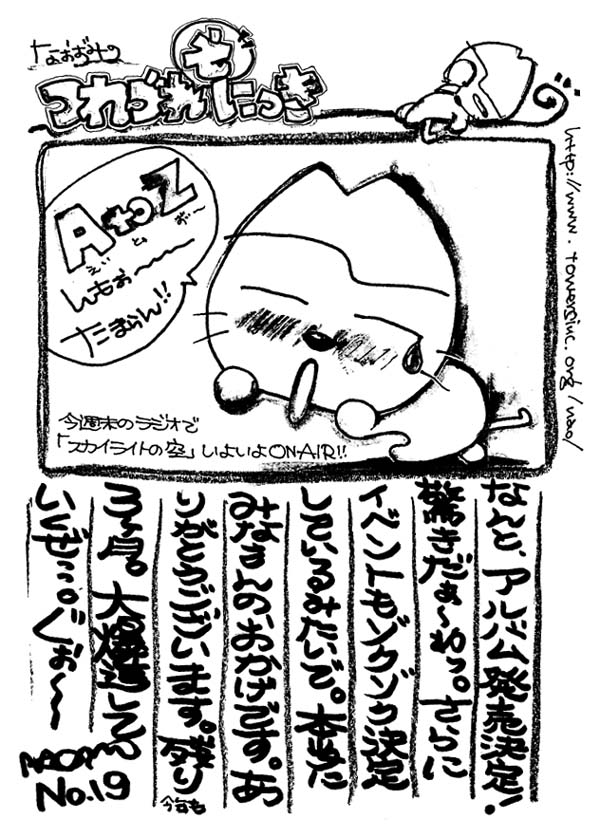 なおぞみの
つれづれ
にっき
http://www.towerginc.org/nao/
AtoZ
えーとおー
んもぉ〜〜
たまらん!!
今週末のラジオで
「スカイライトの空」いよいよON-AIR!!
なんと、アルバム発売決定!
驚きだぁ〜わっ。さらに
イベントもゾクゾク決定
しているみたいで。本当に
みなさんのおかげです。あ
りがとうございます。残り
今年も
3ヶ月。大爆進して
いくぜっ。ぐぉ〜〜
NAO
No.19